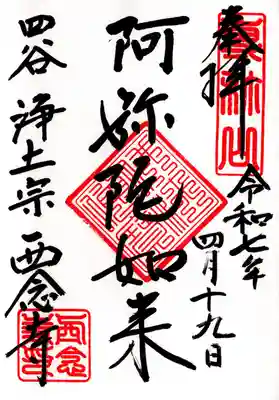 奉拝
令和七年
四月十九日
阿弥陀如来
四谷 浄土宗 西念寺
西念